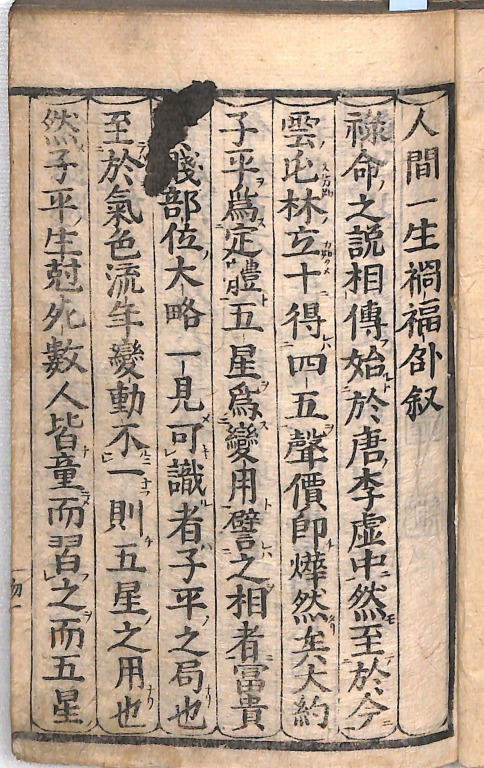 人間一生禍福叙
祿命之説相傳始於唐李虚中然至於今
雲屯林立十得四五聲價即燁然矣大約
子平為定體五星為變用譬之相者冨貴
賤部位大略一見可識者子平之局也
至於氣色流年變動不一則五星之用也
然子平生尅死數人皆童而習之而五星